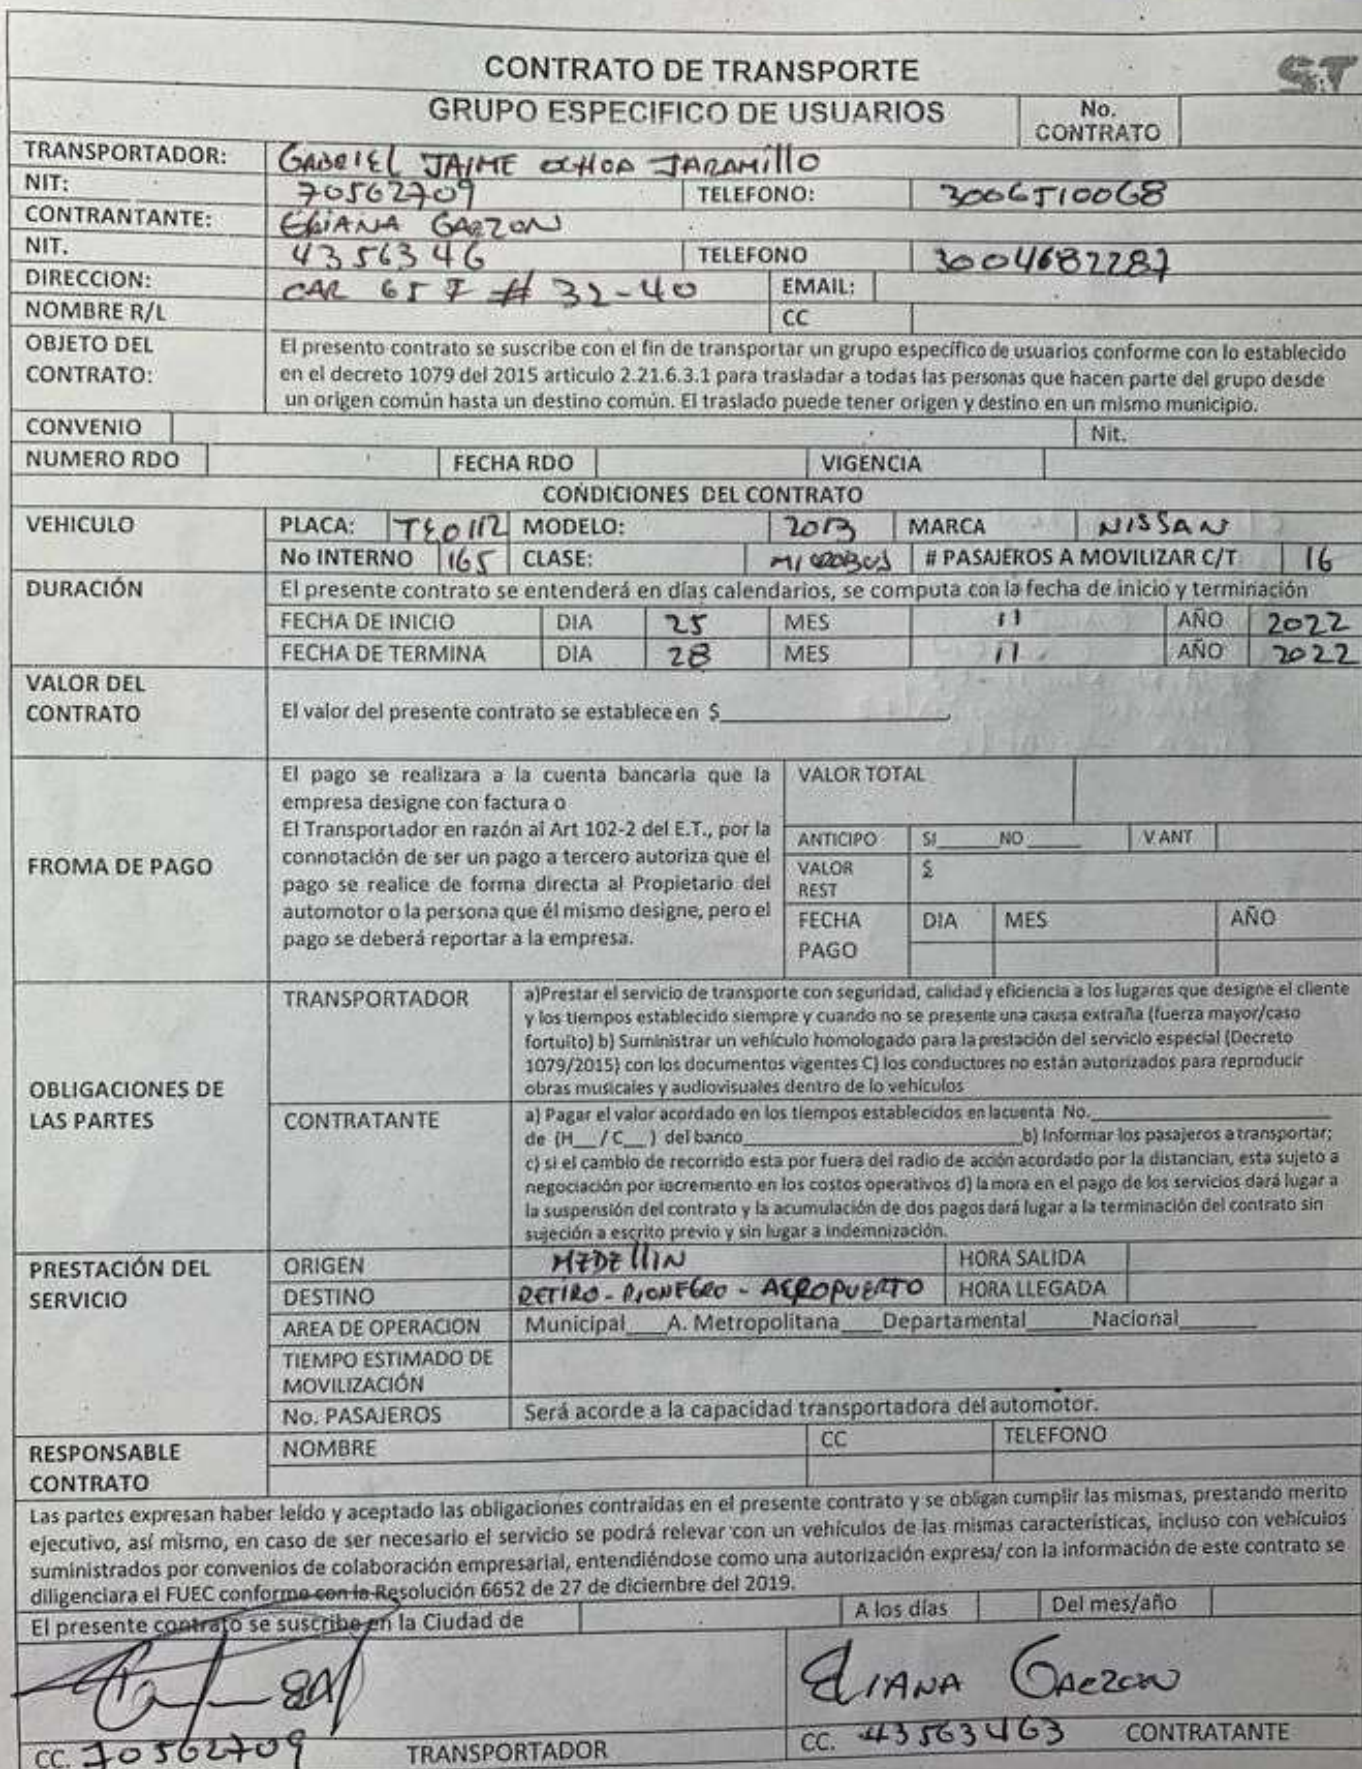 CONTRATO DE TRANSPORTE
ST
GRUPO ESPECIFICO DE USUARIOS
No. CONTRATO
TRANSPORTADOR: GABRIEL JAIME OCHOA JARAMILLO
NIT: 70562709 TELEFONO: 3006510068
CONTRANTANTE: ELIANA GARZON
NIT. 4356346 TELEFONO 3004682287
DIRECCION: CAR 65 F # 32-40 EMAIL:
NOMBRE R/L CC
OBJETO DEL CONTRATO:
El presento contrato se suscribe con el fin de transportar un grupo específico de usuarios conforme con lo establecido
en el decreto 1079 del 2015 articulo 2.21.6.3.1 para trasladar a todas las personas que hacen parte del grupo desde
un origen común hasta un destino común. El traslado puede tener origen y destino en un mismo municipio.
CONVENIO Nit.
NUMERO RDO FECHA RDO VIGENCIA
CONDICIONES DEL CONTRATO
VEHICULO PLACA: TEO112 MODELO: 2013 MARCA NISSAN
No INTERNO 165 CLASE: MICROBUS # PASAJEROS A MOVILIZAR C/T 16
DURACIÓN El presente contrato se entenderá en días calendarios, se computa con la fecha de inicio y terminación
FECHA DE INICIO DIA 25 MES 11 AÑO 2022
FECHA DE TERMINA DIA 28 MES 11 AÑO 2022
VALOR DEL CONTRATO
El valor del presente contrato se establece en $
FROMA DE PAGO
El pago se realizara a la cuenta bancaria que la
empresa designe con factura o
El Transportador en razón al Art 102-2 del E.T., por la
connotación de ser un pago a tercero autoriza que el
pago se realice de forma directa al Propietario del
automotor o la persona que él mismo designe, pero el
pago se deberá reportar a la empresa.
VALOR TOTAL
ANTICIPO SI____NO____ V ANT
VALOR REST $
FECHA PAGO DIA MES AÑO
OBLIGACIONES DE LAS PARTES
TRANSPORTADOR
a)Prestar el servicio de transporte con seguridad, calidad y eficiencia a los lugares que designe el cliente
y los tiempos establecido siempre y cuando no se presente una causa extraña (fuerza mayor/caso
fortuito) b) Suministrar un vehículo homologado para la prestación del servicio especial (Decreto
1079/2015) con los documentos vigentes C) los conductores no están autorizados para reproducir
obras musicales y audiovisuales dentro de lo vehículos
CONTRATANTE
a) Pagar el valor acordado en los tiempos establecidos en lacuenta No.
de (H__/C__) del banco____b) Informar los pasajeros a transportar;
c) si el cambio de recorrido esta por fuera del radio de acción acordado por la distancian, esta sujeto a
negociación por incremento en los costos operativos d) la mora en el pago de los servicios dará lugar a
la suspensión del contrato y la acumulación de dos pagos dará lugar a la terminación del contrato sin
sujeción a escrito previo y sin lugar a indemnización.
PRESTACIÓN DEL SERVICIO
ORIGEN MEDELLIN HORA SALIDA
DESTINO RETIRO - RIONEGRO - AEROPUERTO HORA LLEGADA
AREA DE OPERACION Municipal____A. Metropolitana____Departamental____Nacional____
TIEMPO ESTIMADO DE MOVILIZACIÓN
No. PASAJEROS Será acorde a la capacidad transportadora del automotor.
RESPONSABLE CONTRATO
NOMBRE CC TELEFONO
Las partes expresan haber leído y aceptado las obligaciones contraidas en el presente contrato y se obligan cumplir las mismas, prestando merito
ejecutivo, así mismo, en caso de ser necesario el servicio se podrá relevar con un vehículos de las mismas características, incluso con vehículos
suministrados por convenios de colaboración empresarial, entendiéndose como una autorización expresa/ con la información de este contrato se
diligenciara el FUEC conforme con la Resolución 6652 de 27 de diciembre del 2019.
El presente contrato se suscribe en la Ciudad de A los días Del mes/año
ELIANA GARZON
CC. 70562709 TRANSPORTADOR
CC. 43563463 CONTRATANTE